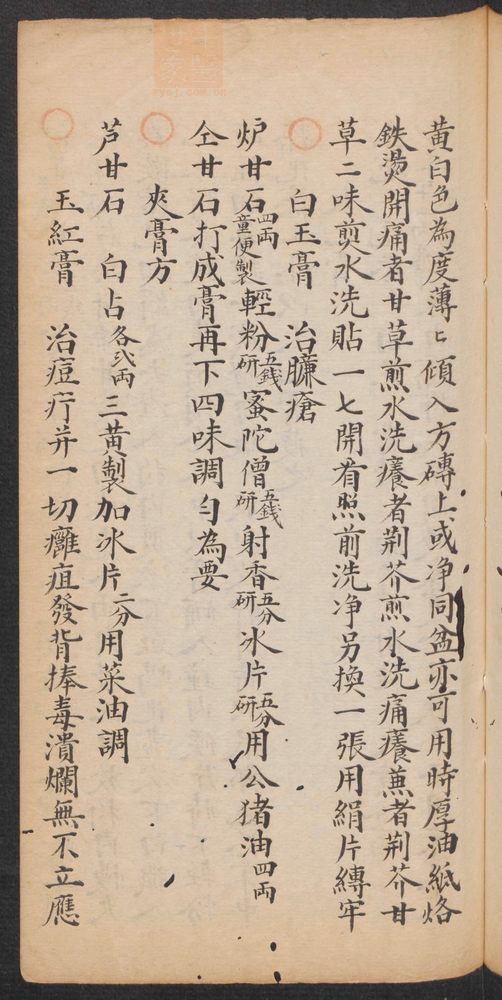 黄白色為度薄〻傾入方磚上或净同盆亦可用時厚油紙烙
鉄燙開痛者甘草煎水洗癢者荆芥煎水洗痛癢蒹者荆芥甘
草二味煎水洗貼一七開看照前洗净另換一張用絹片縛牢
白玉膏 治臁瘡
炉甘石四両童便製輕粉五錢研蜜陀僧五錢研射香五分研冰片五分研用公猪油四両
仝甘石打成膏再下四味調匀為要
夾膏方
芦甘石 白占各弍両三黄製加冰片二分用菜油調
玉紅膏 治痘疔并一切癰疽發背捧毒潰爛無不立應